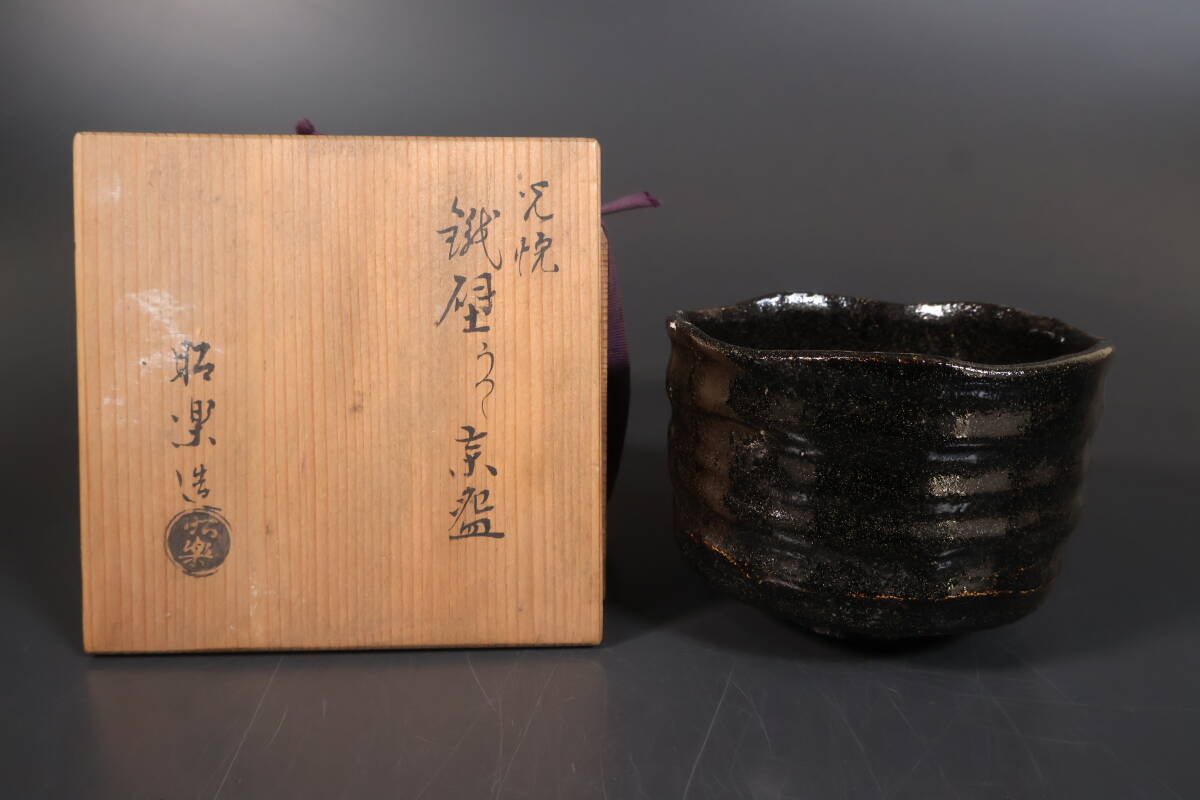 光悦
鐵壁うつし茶盌
昭楽造
昭楽